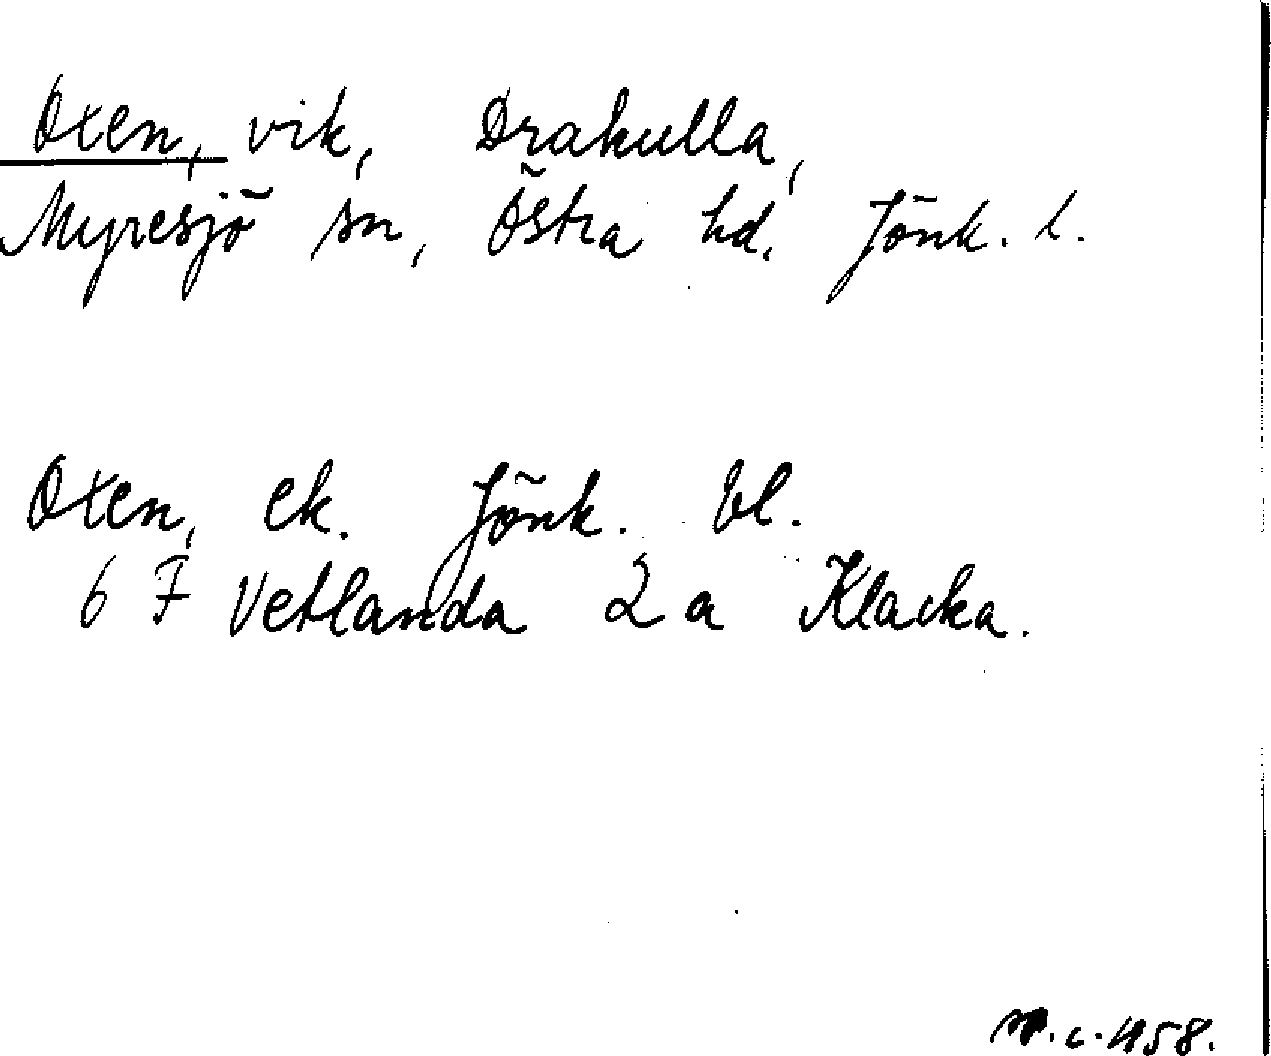 Oxen, vik, Drakulla,
Myresjö sn, Östra hd. Jönk. l.
Oxen, ek. Jönk. bl.
6 F Vetlanda 2 a Klacka.
1958.